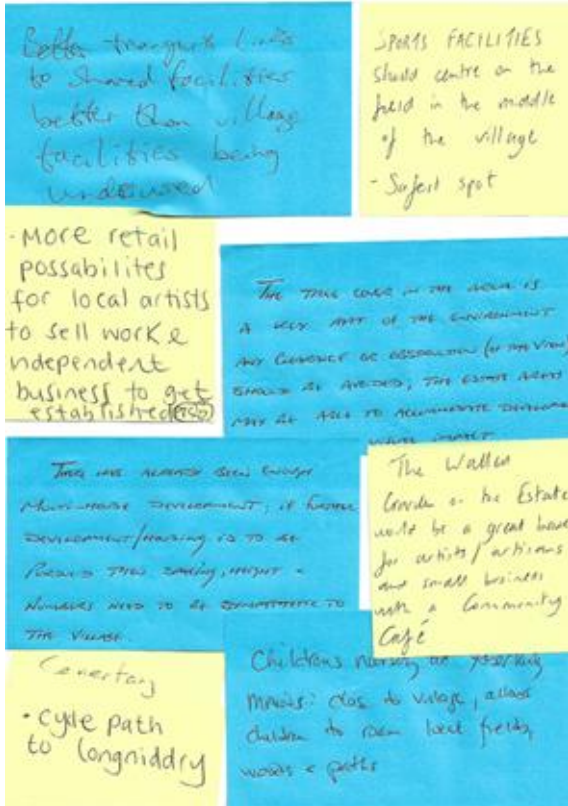 Better transport links
to shared facilities
better than village
facilities being
underused
SPORTS FACILITIES
should centre on the
field in the middle
of the village
- Safest spot
· MORE retail
possabilites
for local artists
to sell work &
independent
business to get
established
THE TREE COVER IN THE AREA IS
A KEY PART OF THE ENVIRONMENT
ANY CLEARANCE OR OBSTRUCTION (OF THE VIEW)
SHOULD BE AVOIDED, THE ESTATE AREAS
MAY BE ABLE TO ACCOMMODATE
IMPACT
THERE HAS ALREADY BEEN ENOUGH
MULTI-HOUSE DEVELOPMENT, IF FURTHER
DEVELOPMENT/HOUSING IS TO BE
THEN HEIGHT &
NUMBERS NEED TO BE SYMPATHETIC TO
THE VILLAGE.
The Walled
Garden on the Estate
would be a great base
for artists/artisans
and small business
with a Community
Café
· cycle path
to Longniddry
Childrens nursery at
Mains: close to village, allows
children to roam local fields,
woods & paths